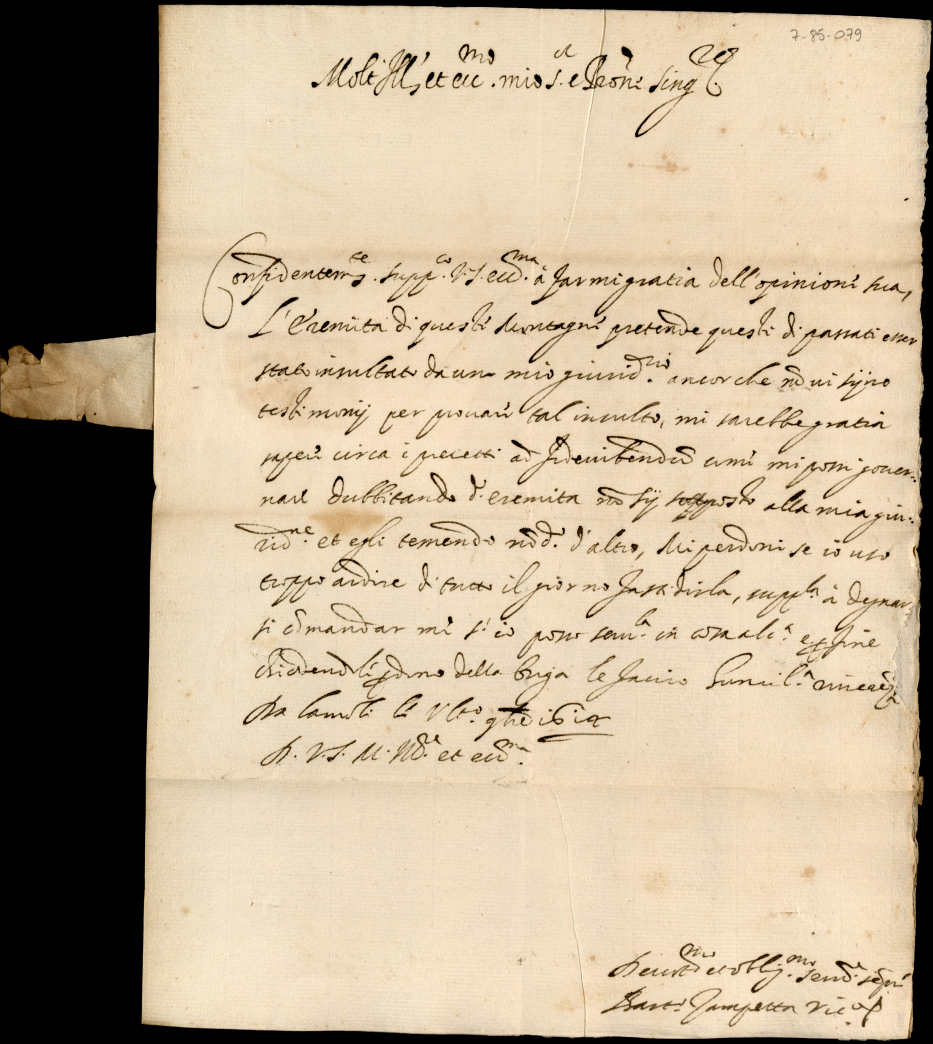 7-85-079
Molt' Ill.re et ecc.mo mio s.r e Pron.e sing.re
Confidentem.te supp.co V.S. ecc.ma à farmi gratia dell'opinione sua,
L'Eremita di queste Montagne pretende questi dì passati esser
stato insultato da un mio giurid.rio ancor che nō vi sijno
testimonij per provare tal insulto, mi sarebbe gratia
sapere circa i precetti ad come mi possi gover-
nare dubbitando d.o eremita nō sij sottoposto alla mia giu-
rid.ne et egli temendo d'altro, Mi perdoni se io uso
troppo ardire di tutto il giorno fastidirla, supp.la à degnar-
si cōmandar mi s'io posso serv.la in cosa alc.a e per fine
chiedendoli perdono della briga le faccio humil.a
Da li Ult.o 9bre
D. V.S. M. et ecc.ma
Devot.mo et oblig.mo serv.re
Bart.o Zampetta Vic.o